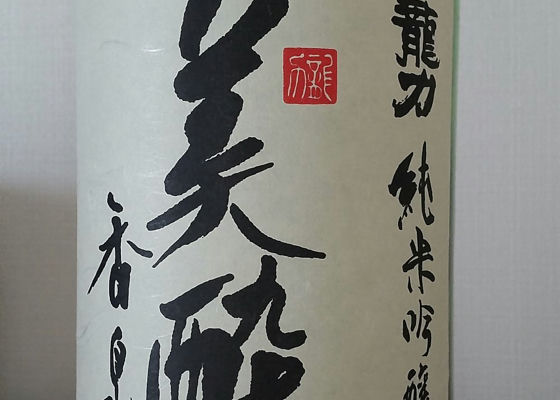 龍力 純米吟醸
美酔
香泉